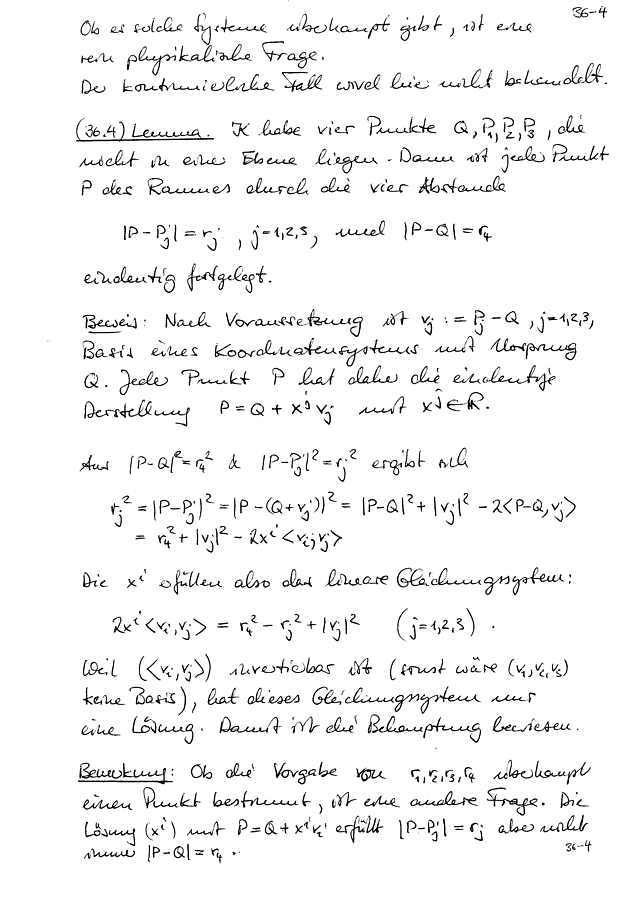 36-4
Ob es solche Systeme überhaupt gibt, ist eine
rein physikalische Frage.
Der kontinuierliche Fall wird hier nicht behandelt.
(36.4) Lemma. K habe vier Punkte Q, P₁, P₂, P₃, die
nicht in einer Ebene liegen. Dann ist jeder Punkt
P des Raumes durch die vier Abstände
|P-Pⱼ| = rⱼ, j=1,2,3, und |P-Q| = r₄
eindeutig festgelegt.
Beweis: Nach Voraussetzung ist vⱼ := Pⱼ - Q, j=1,2,3,
Basis eines Koordinatensystems mit Ursprung
Q. Jeder Punkt P hat daher die eindeutige
Darstellung P = Q + xʲvⱼ mit xʲ ∈ ℝ.
Aus |P-Q|² = r₄² & |P-Pⱼ|² = rⱼ² ergibt sich
rⱼ² = |P-Pⱼ|² = |P-(Q+vⱼ)|² = |P-Q|² + |vⱼ|² - 2<P-Q, vⱼ>
= r₄² + |vⱼ|² - 2xⁱ<vᵢ, vⱼ>
Die xⁱ erfüllen also das lineare Gleichungssystem:
2xⁱ<vᵢ, vⱼ> = r₄² - rⱼ² + |vⱼ|² (j=1,2,3).
Weil (<vᵢ, vⱼ>) invertierbar ist (sonst wäre (v₁, v₂, v₃)
keine Basis), hat dieses Gleichungssystem nur
eine Lösung. Damit ist die Behauptung bewiesen.
Bemerkung: Ob die Vorgabe von r₁, r₂, r₃, r₄ überhaupt
einen Punkt bestimmt, ist eine andere Frage. Die
Lösung (xⁱ) mit P = Q + xⁱvᵢ erfüllt |P-Pⱼ| = rⱼ aber nicht
immer |P-Q| = r₄.
36-4